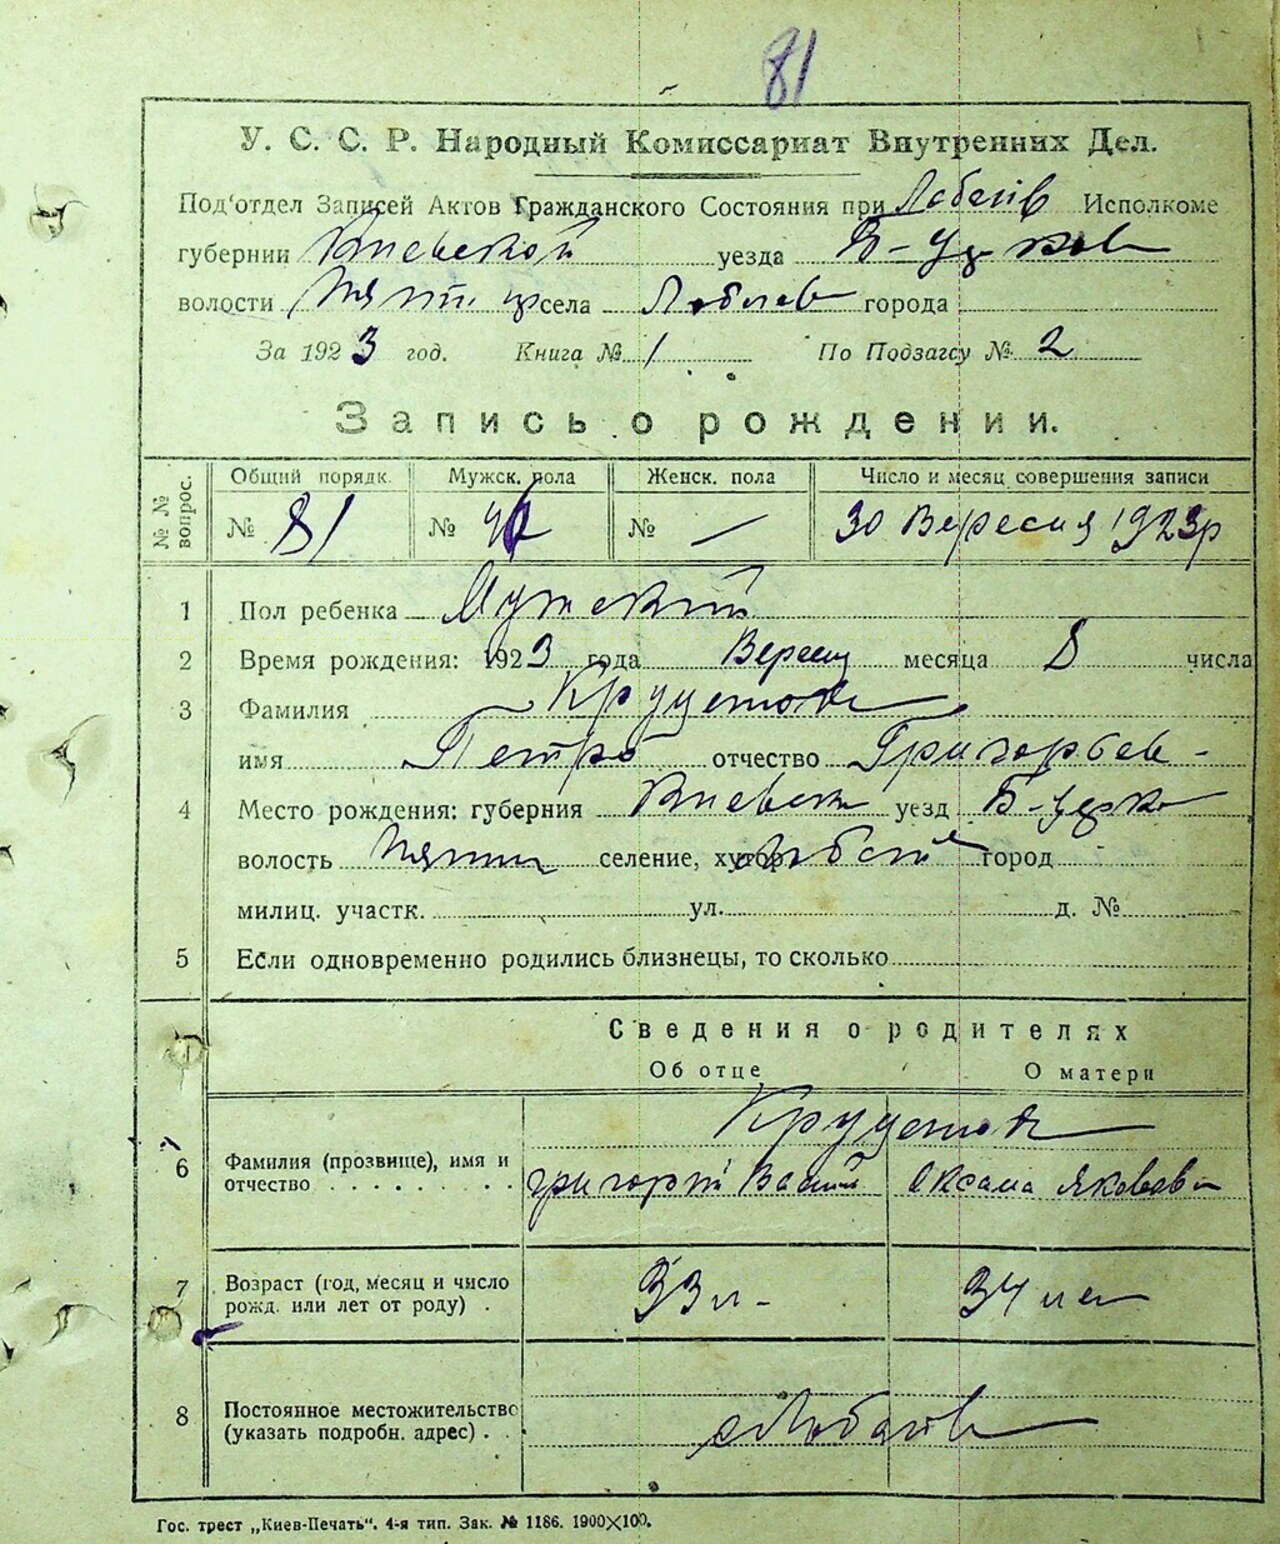 81
У. С. С. Р. Народный Комиссариат Внутренних Дел.
Под'отдел Записей Актов Гражданского Состояния при Исполкоме
губернии Киевской уезда Б-Церков
волости села города
За 1923 год. Книга № 1 По Подзагсу № 2
Запись о рождении.
№ № вопрос. Общий порядк. Мужск. пола Женск. пола Число и месяц совершения записи
№ 81 № № — 30 Вересня 1923р
1 Пол ребенка Мужский
2 Время рождения: 1923 года Вересня месяца 8 числа
3 Фамилия
имя Петро отчество Григорьев-
4 Место рождения: губерния Киевск уезд Б-Церк
волость селение, хутор город
милиц. участк. ул. д. №
5 Если одновременно родились близнецы, то сколько
Сведения о родителях
Об отце О матери
6 Фамилия (прозвище), имя и отчество Григорій Васил Оксана Яковлев
7 Возраст (год, месяц и число рожд. или лет от роду) 33 л- 34 лет
8 Постоянное местожительство (указать подробн. адрес)
Гос. трест „Киев-Печать“. 4-я тип. Зак. № 1186. 1900×100.